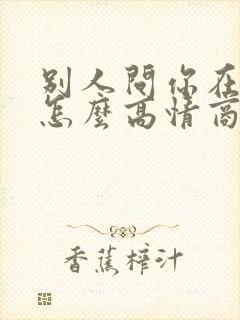 别人問你在
怎麼高情商
香蕉榨汁